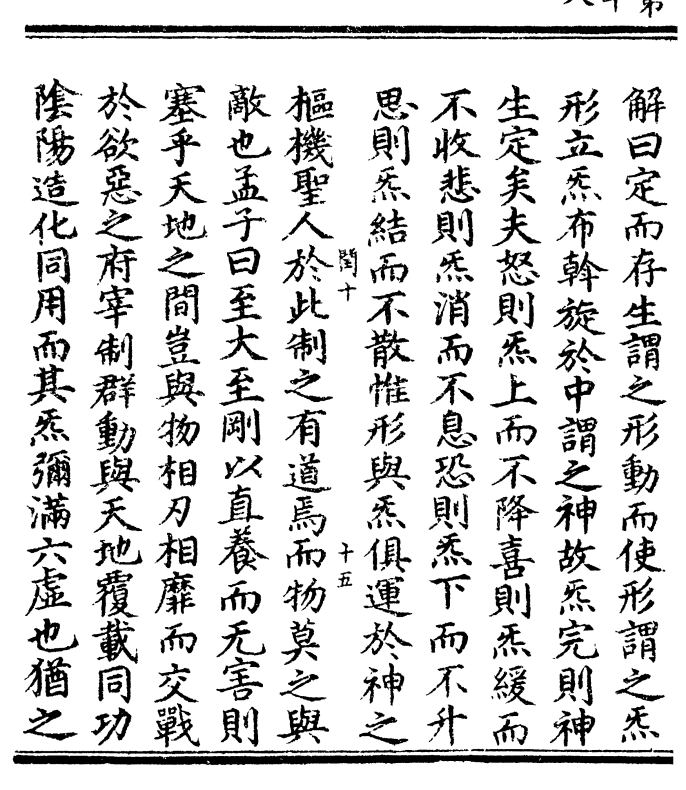 解曰定而存生謂之形動而使形謂之炁
形立炁布斡旋於中謂之神故炁完則神
生定矣夫怒則炁上而不降喜則炁緩而
不收悲則炁消而不息恐則炁下而不升
思則炁結而不散惟形與炁俱運於神之
閏十 十五
樞機聖人於此制之有道焉而物莫之與
敵也孟子曰至大至剛以直養而无害則
塞乎天地之間豈與物相刃相靡而交戰
於欲惡之府宰制群動與天地覆載同功
陰陽造化同用而其炁彌滿六虛也猶之